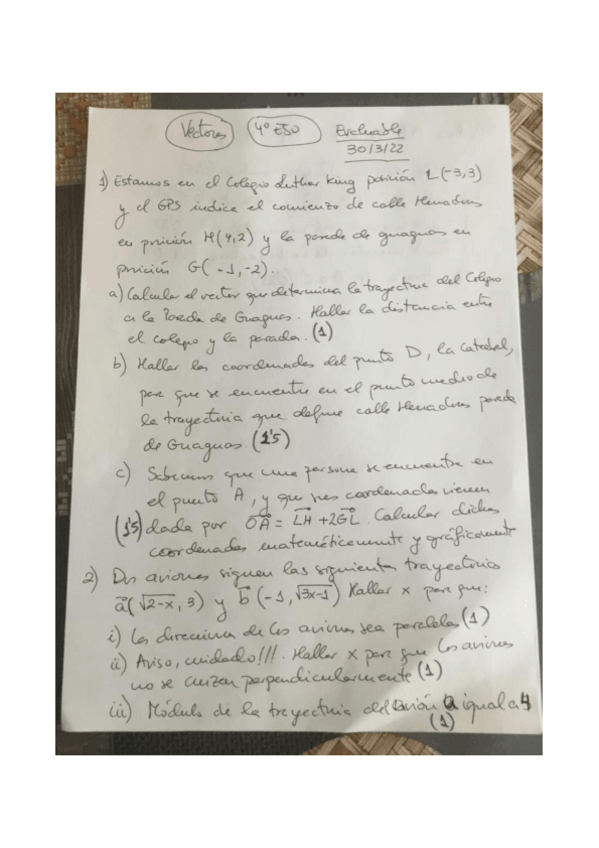 Vectores 4º ESO Evaluable
30/3/22
1) Estamos en el Colegio Luther King posición L(-3,3)
y el GPS indica el comienzo de calle Herradores
en posición H(4,2) y la parada de guaguas en
posición G(-1,-2).
a) Calcular el vector que determina la trayectoria del Colegio
a la Parada de Guaguas. Hallar la distancia entre
el colegio y la parada. (1)
b) Hallar las coordenadas del punto D, la Catedral,
para que se encuentre en el punto medio de
la trayectoria que define calle Herradores parada
de Guaguas. (1'5)
c) Sabemos que una persona se encuentra en
el punto A, y que sus coordenadas vienen
(1'5) dada por OA = LH + 2GL. Calcular dichas
coordenadas matemáticamente y gráficamente
2) Dos aviones siguen las siguientes trayectorias
a(√2-x, 3) y b(-1, √3x-1) Hallar x para que:
i) Las direcciones de los aviones sea paralelas (1)
ii) Aviso, cuidado!!!. Hallar x para que los aviones
no se cruzen perpendicularmente (1)
iii) Módulo de la trayectoria del avión a igual a 4
(1)